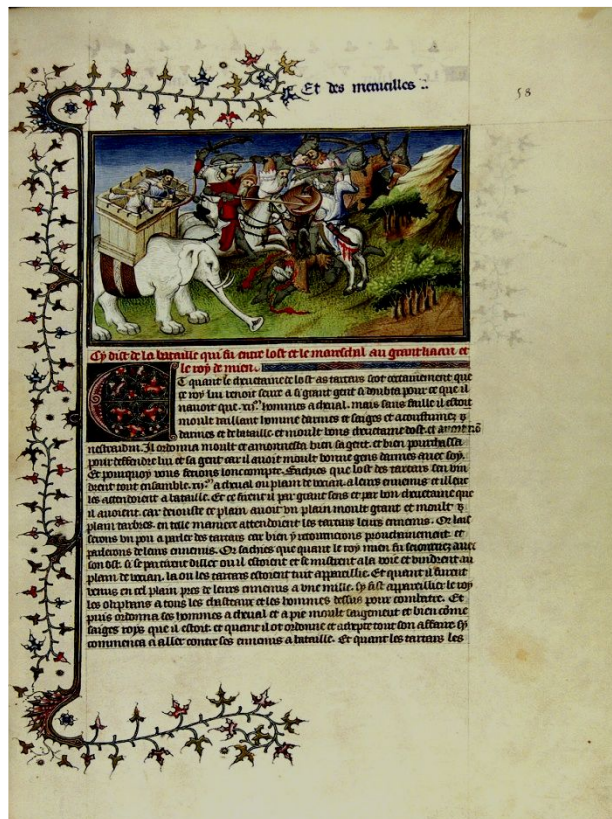 Et des merueilles
58
Cy dist de la bataille qui fu entre lost et le mareschal au grant kaan et
le roy de mien.
Et quant le cheuetaine de lost as tartars sot certainement que
ce roy lui venoit seure a si grant gent si doubta pour ce que il
nauoit que .xij.m hommes a cheual. mais sans faille il estoit
moult vaillant homme darmes et saiges et acoustumez
darmes et de bataille et moult bons cheuetaine dost. et auoit nō
nestradin. Il ordonna moult et amonnesta bien sa gent. et bien pourchassa
pour deffendre lui et sa gent car il auoit moult bonne gens darmes auec soy.
Et pourquoy vous ferons lonc compte. Sachies que lost des tartars sen vin
drent tout ensamble .xij.m a cheual ou plain de vocian. a leurs ennemis et illeuc
les attendoient a bataille. Et ce firent il par grant sens et par bon cheuetaine que
il auoient. car de iouste ce plain auoit vn plain moult grant et moult
plain darbres. en telle maniere attendoient les tartars leurs ennemis. Or lais
serons vn pou a parler des tartars car bien y retournerons prouchainement. et
parlerons de leurs ennemis. Or sachies que quant le roy mien fu seiournez auec
son ost. si se partirent dillec ou il estoient et se mistrent a la voie et vindrent au
plain de vocian. la ou les tartars estoient tuit appareillie. Et quant il furent
venus en cel plain pres de leurs ennemis a vne mille. sy fist appareillier le roy
les oliphans a tous les chasteaux et les hommes dessus pour combatre. Et
puis ordonna ses hommes a cheual et a pie moult saigement et bien cōme
saiges roys que il estoit. et quant il ot ordonne et
tout son affaire. sy
commenca a aller contre ses ennemis a bataille. Et quant les tartars les